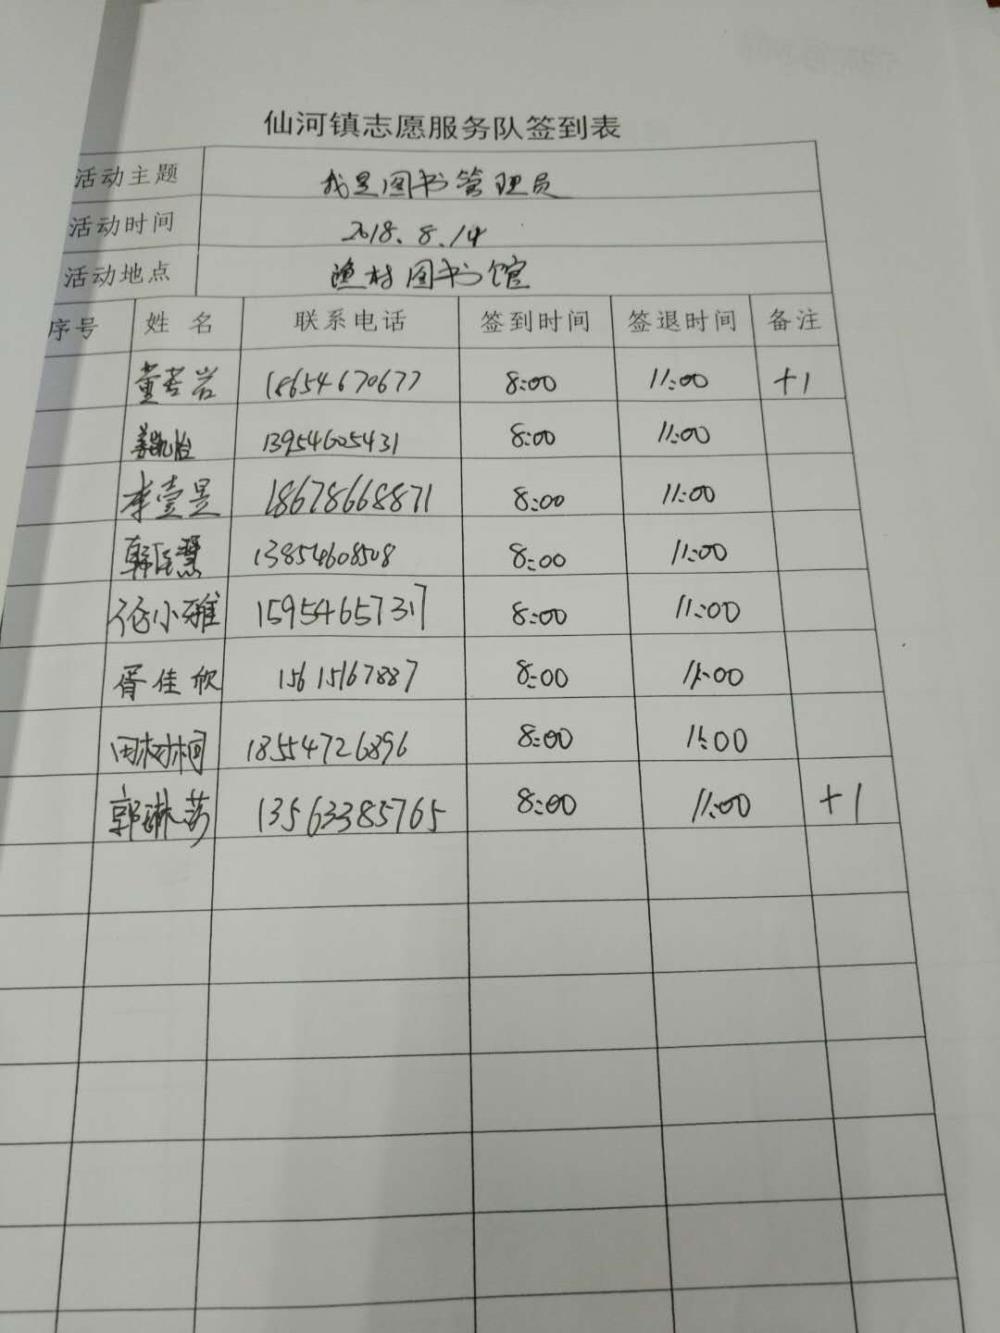 仙河镇志愿服务队签到表
活动主题 我是图书管理员
活动时间 2018.8.14
活动地点 渔村图书馆
序号 姓名 联系电话 签到时间 签退时间 备注
董若岩 18654670677 8:00 11:00 +1
姜凯怡 13954605431 8:00 11:00
李壹昱 18678668871 8:00 11:00
韩 慧 13854608508 8:00 11:00
小雅 15954657317 8:00 11:00
胥佳欣 15615167887 8:00 11:00
田树桐 18554726896 8:00 11:00
郭琳莎 13563385765 8:00 11:00 +1